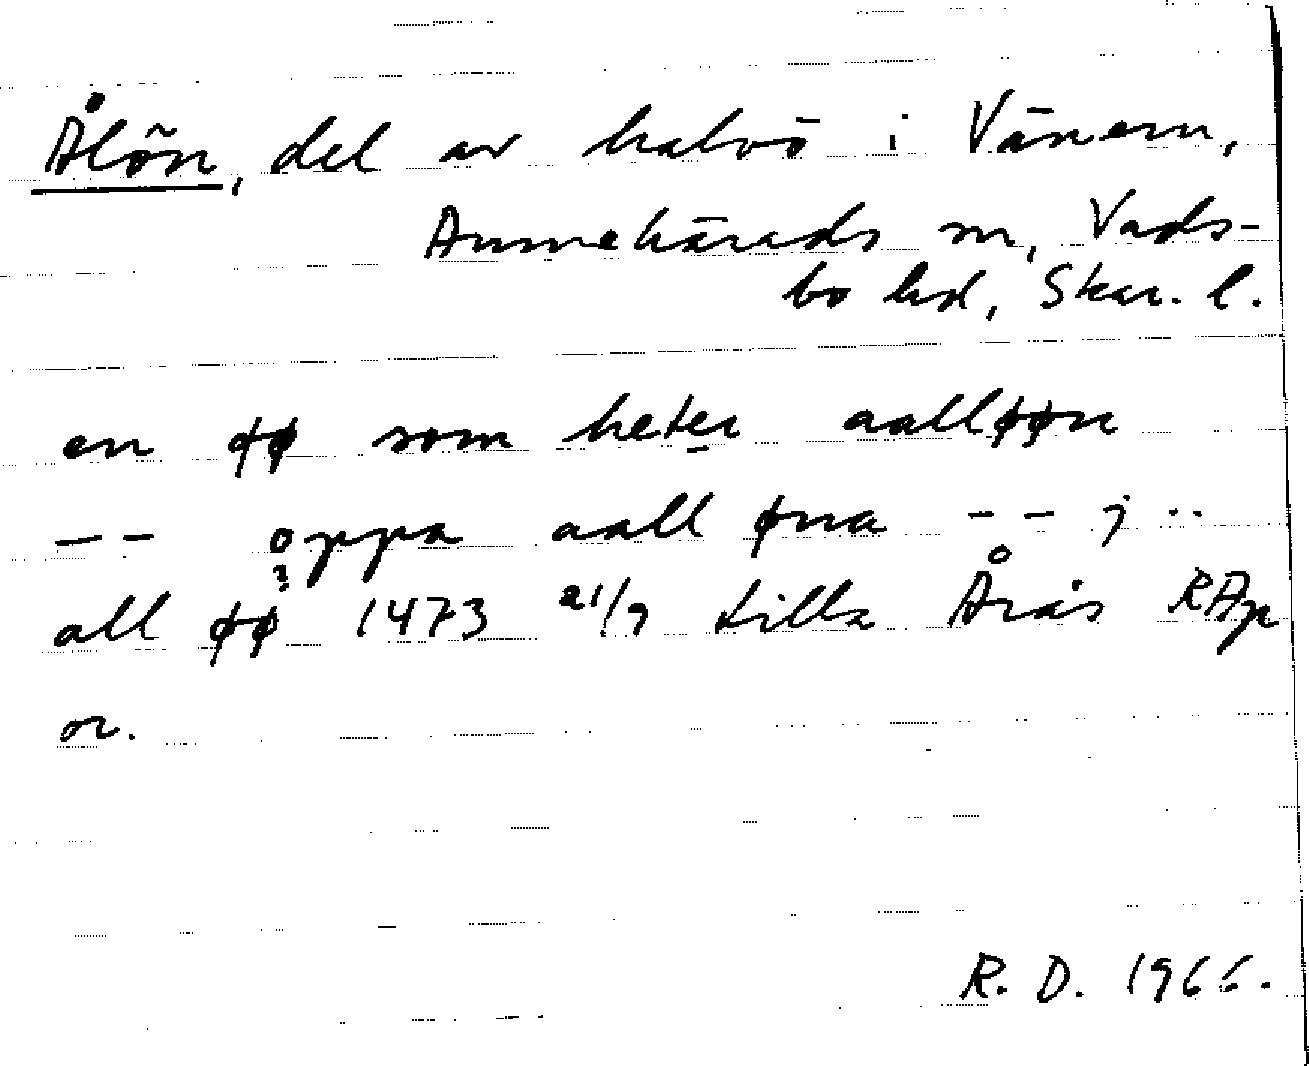 Ålön, del av halvö i Vänern,
Amnehärads sn, Vads-
bo hd, Skar. l.
en øø som heter aalløøn
-- oppa aall øna -- j ..
all øø 1473 21/9 Lilla Årås RAp
or.
R. D. 1966.